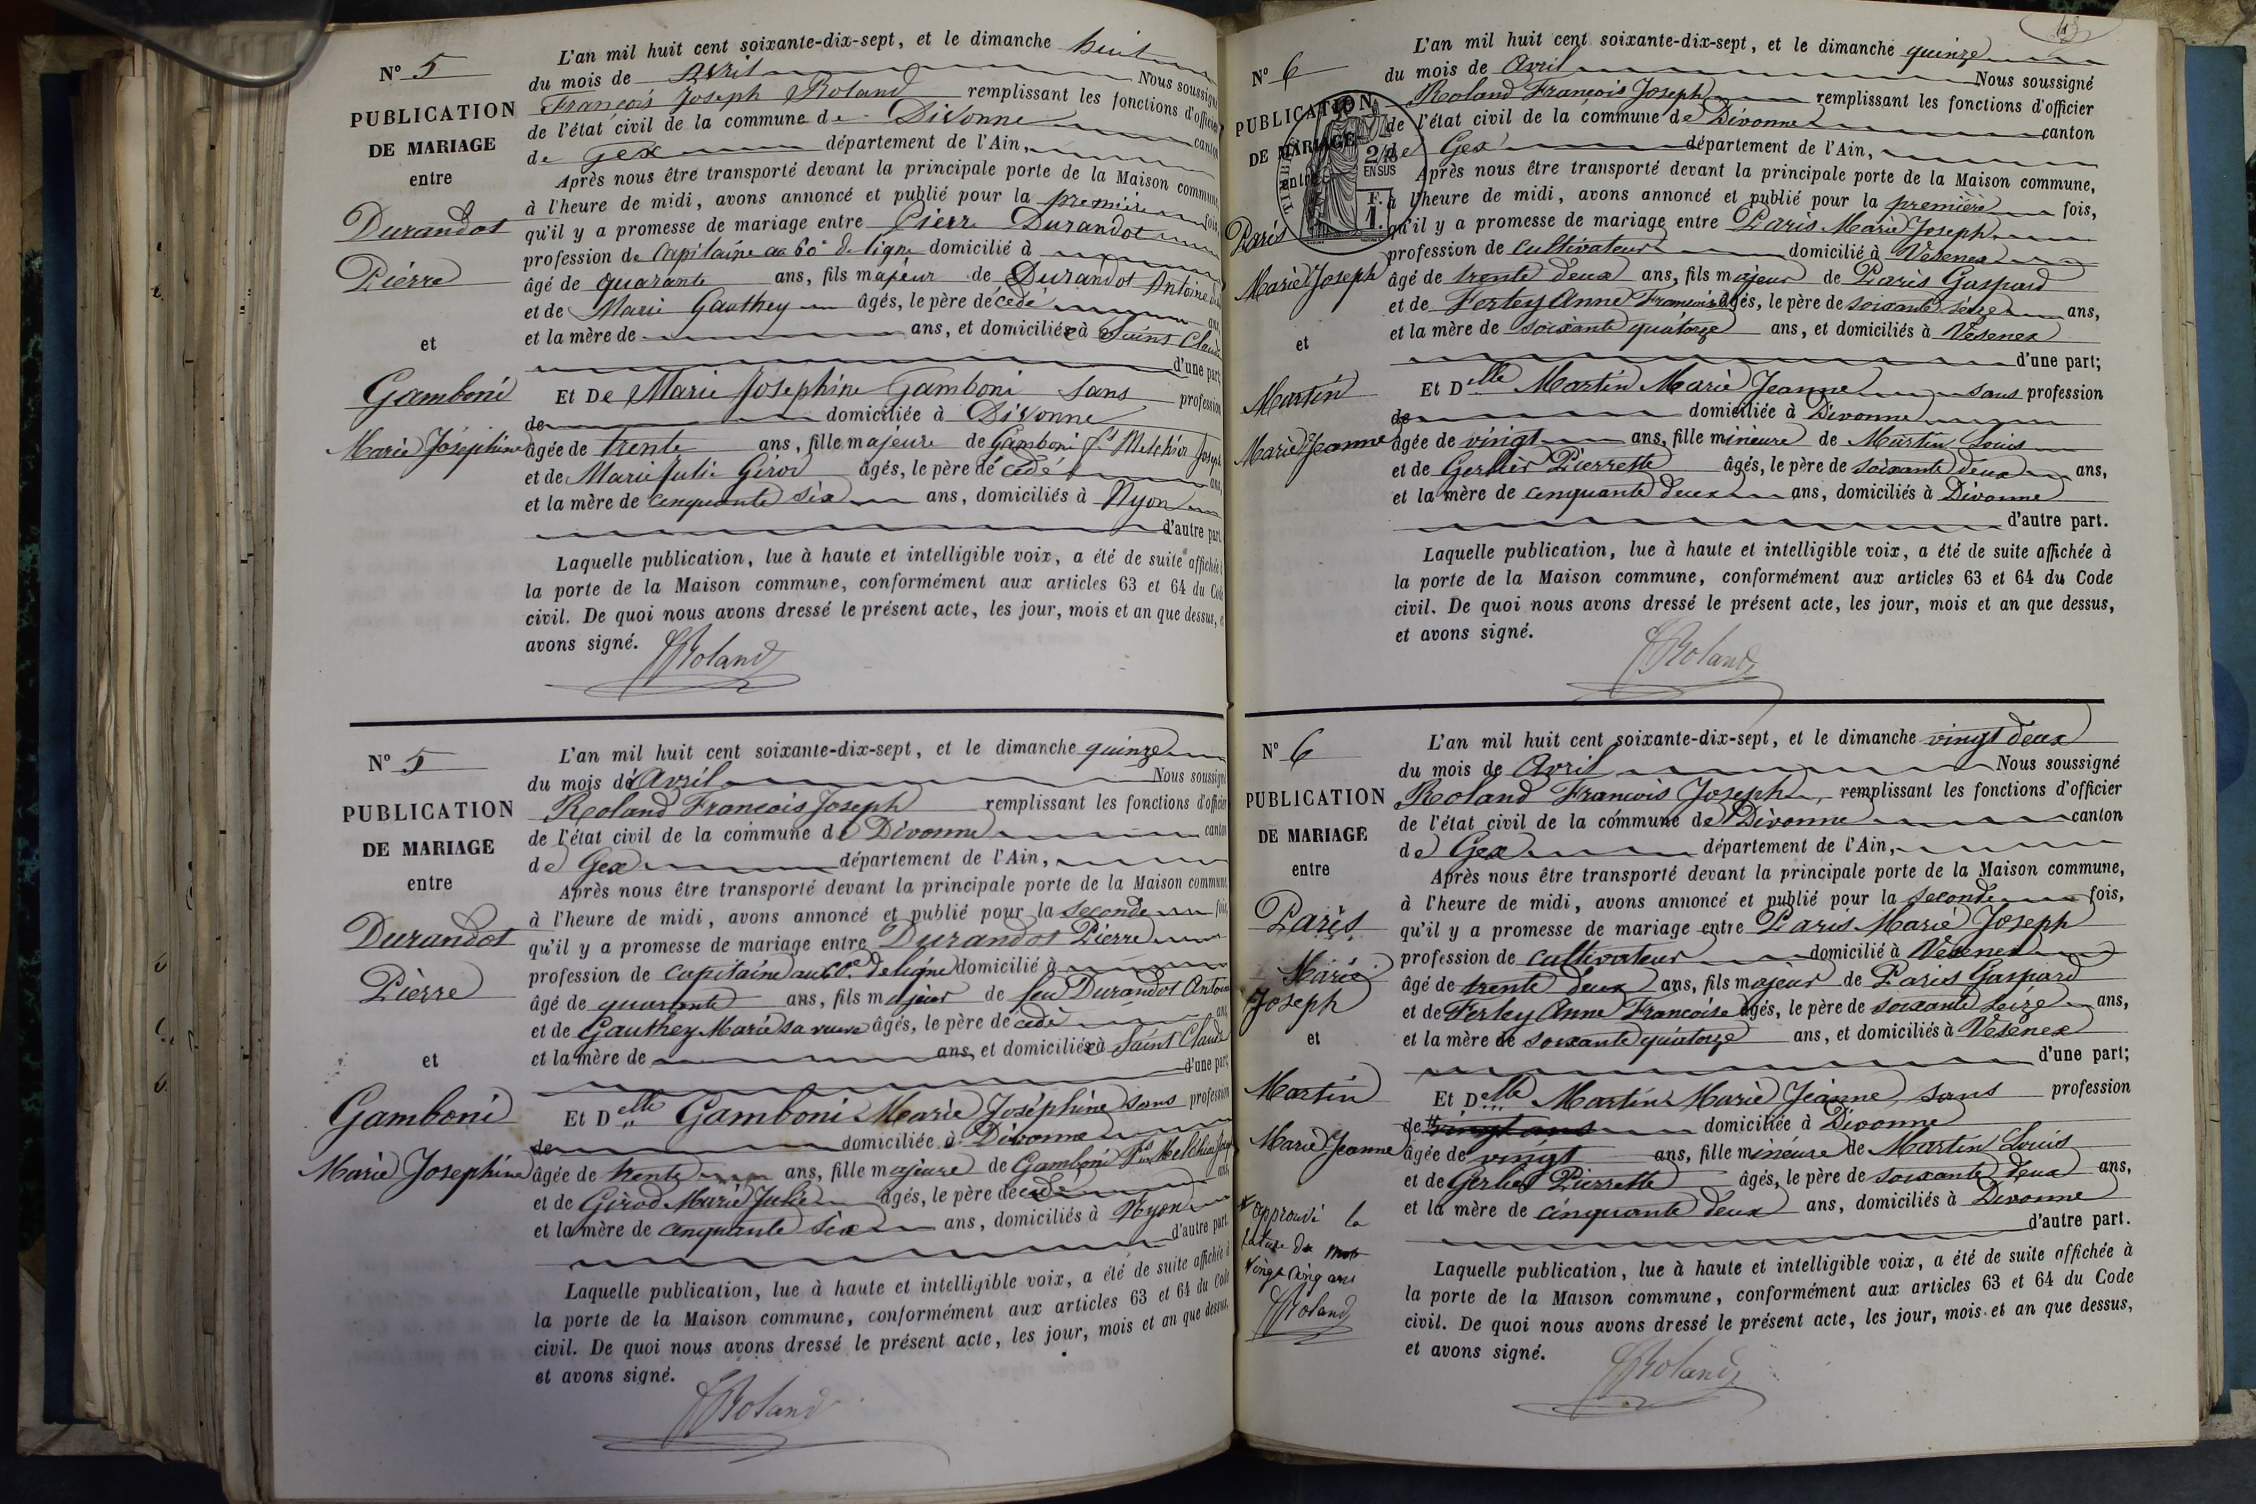 N° 5
PUBLICATION
DE MARIAGE
entre
Durandot
Pierre
et
Gamboni
Marie Joséphine
L'an mil huit cent soixante-dix-sept, et le dimanche huit
du mois de Avril Nous soussigné
François Joseph Roland remplissant les fonctions d'officier
de l'état civil de la commune de Divonne canton
de Gex département de l'Ain,
Après nous être transporté devant la principale porte de la Maison commune,
à l'heure de midi, avons annoncé et publié pour la première fois,
qu'il y a promesse de mariage entre Pierre Durandot
profession de Capitaine au 60e de ligne domicilié à
âgé de quarante ans, fils majeur de Durandot Antoine
et de Marie Gauthey âgés, le père décédé ans,
et la mère de ans, et domiciliée à Saint Claude
d'une part;
Et De Marie Josephine Gamboni sans profession
de domiciliée à Divonne
âgée de trente ans, fille majeure de Gamboni Melchior Joseph
et de Marie Julie Girod âgés, le père décédé ans,
et la mère de cinquante six ans, domiciliés à Nyon
d'autre part.
Laquelle publication, lue à haute et intelligible voix, a été de suite affichée à
la porte de la Maison commune, conformément aux articles 63 et 64 du Code
civil. De quoi nous avons dressé le présent acte, les jour, mois et an que dessus, et
avons signé.
Roland
N° 5
PUBLICATION
DE MARIAGE
entre
Durandot
Pierre
et
Gamboni
Marie Josephine
L'an mil huit cent soixante-dix-sept, et le dimanche quinze
du mois de Avril Nous soussigné
Roland François Joseph remplissant les fonctions d'officier
de l'état civil de la commune de Divonne canton
de Gex département de l'Ain,
Après nous être transporté devant la principale porte de la Maison commune,
à l'heure de midi, avons annoncé et publié pour la seconde fois,
qu'il y a promesse de mariage entre Durandot Pierre
profession de capitaine au 60e de ligne domicilié à
âgé de quarante ans, fils majeur de feu Durandot Antoine
et de Gauthey Marie sa veuve âgés, le père décédé ans,
et la mère de ans, et domiciliée à Saint Claude
d'une part;
Et Delle Gamboni Marie Joséphine sans profession
de domiciliée à Divonne
âgée de trente ans, fille majeure de Gamboni Melchior Joseph
et de Girod Marie Julie âgés, le père décédé ans,
et la mère de cinquante six ans, domiciliés à Nyon
d'autre part.
Laquelle publication, lue à haute et intelligible voix, a été de suite affichée à
la porte de la Maison commune, conformément aux articles 63 et 64 du Code
civil. De quoi nous avons dressé le présent acte, les jour, mois et an que dessus,
et avons signé.
Roland
N° 6
PUBLICATION
DE MARIAGE
entre
TIMBRE
2/10
EN SUS
F.
1.
Paris
Marie Joseph
et
Martin
Marie Jeanne
L'an mil huit cent soixante-dix-sept, et le dimanche quinze
du mois de Avril Nous soussigné
Roland François Joseph remplissant les fonctions d'officier
de l'état civil de la commune de Divonne canton
de Gex département de l'Ain,
Après nous être transporté devant la principale porte de la Maison commune,
à l'heure de midi, avons annoncé et publié pour la première fois,
qu'il y a promesse de mariage entre Paris Marie Joseph
profession de cultivateur domicilié à Vésenex
âgé de trente deux ans, fils majeur de Paris Gaspard
et de Ferley Anne Françoise âgés, le père de soixante seize ans,
et la mère de soixante quatorze ans, et domiciliés à Vésenex
d'une part;
Et Delle Martin Marie Jeanne sans profession
de domiciliée à Divonne
âgée de vingt ans, fille mineure de Martin Louis
et de Gerlier Pierrette âgés, le père de soixante deux ans,
et la mère de cinquante deux ans, domiciliés à Divonne
d'autre part.
Laquelle publication, lue à haute et intelligible voix, a été de suite affichée à
la porte de la Maison commune, conformément aux articles 63 et 64 du Code
civil. De quoi nous avons dressé le présent acte, les jour, mois et an que dessus,
et avons signé.
Roland
N° 6
PUBLICATION
DE MARIAGE
entre
Paris
Marie
Joseph
et
Martin
Marie Jeanne
approuvé la
rature du mot
vingt cinq ans
Roland
L'an mil huit cent soixante-dix-sept, et le dimanche vingt deux
du mois de Avril Nous soussigné
Roland François Joseph remplissant les fonctions d'officier
de l'état civil de la commune de Divonne canton
de Gex département de l'Ain,
Après nous être transporté devant la principale porte de la Maison commune,
à l'heure de midi, avons annoncé et publié pour la seconde fois,
qu'il y a promesse de mariage entre Paris Marie Joseph
profession de cultivateur domicilié à Vésenex
âgé de trente deux ans, fils majeur de Paris Gaspard
et de Ferley Anne Françoise âgés, le père de soixante seize ans,
et la mère de soixante quatorze ans, et domiciliés à Vésenex
d'une part;
Et Delle Martin Marie Jeanne sans profession
de vingt ans domiciliée à Divonne
âgée de vingt ans, fille mineure de Martin Louis
et de Gerlier Pierrette âgés, le père de soixante deux ans,
et la mère de cinquante deux ans, domiciliés à Divonne
d'autre part.
Laquelle publication, lue à haute et intelligible voix, a été de suite affichée à
la porte de la Maison commune, conformément aux articles 63 et 64 du Code
civil. De quoi nous avons dressé le présent acte, les jour, mois et an que dessus,
et avons signé.
Roland